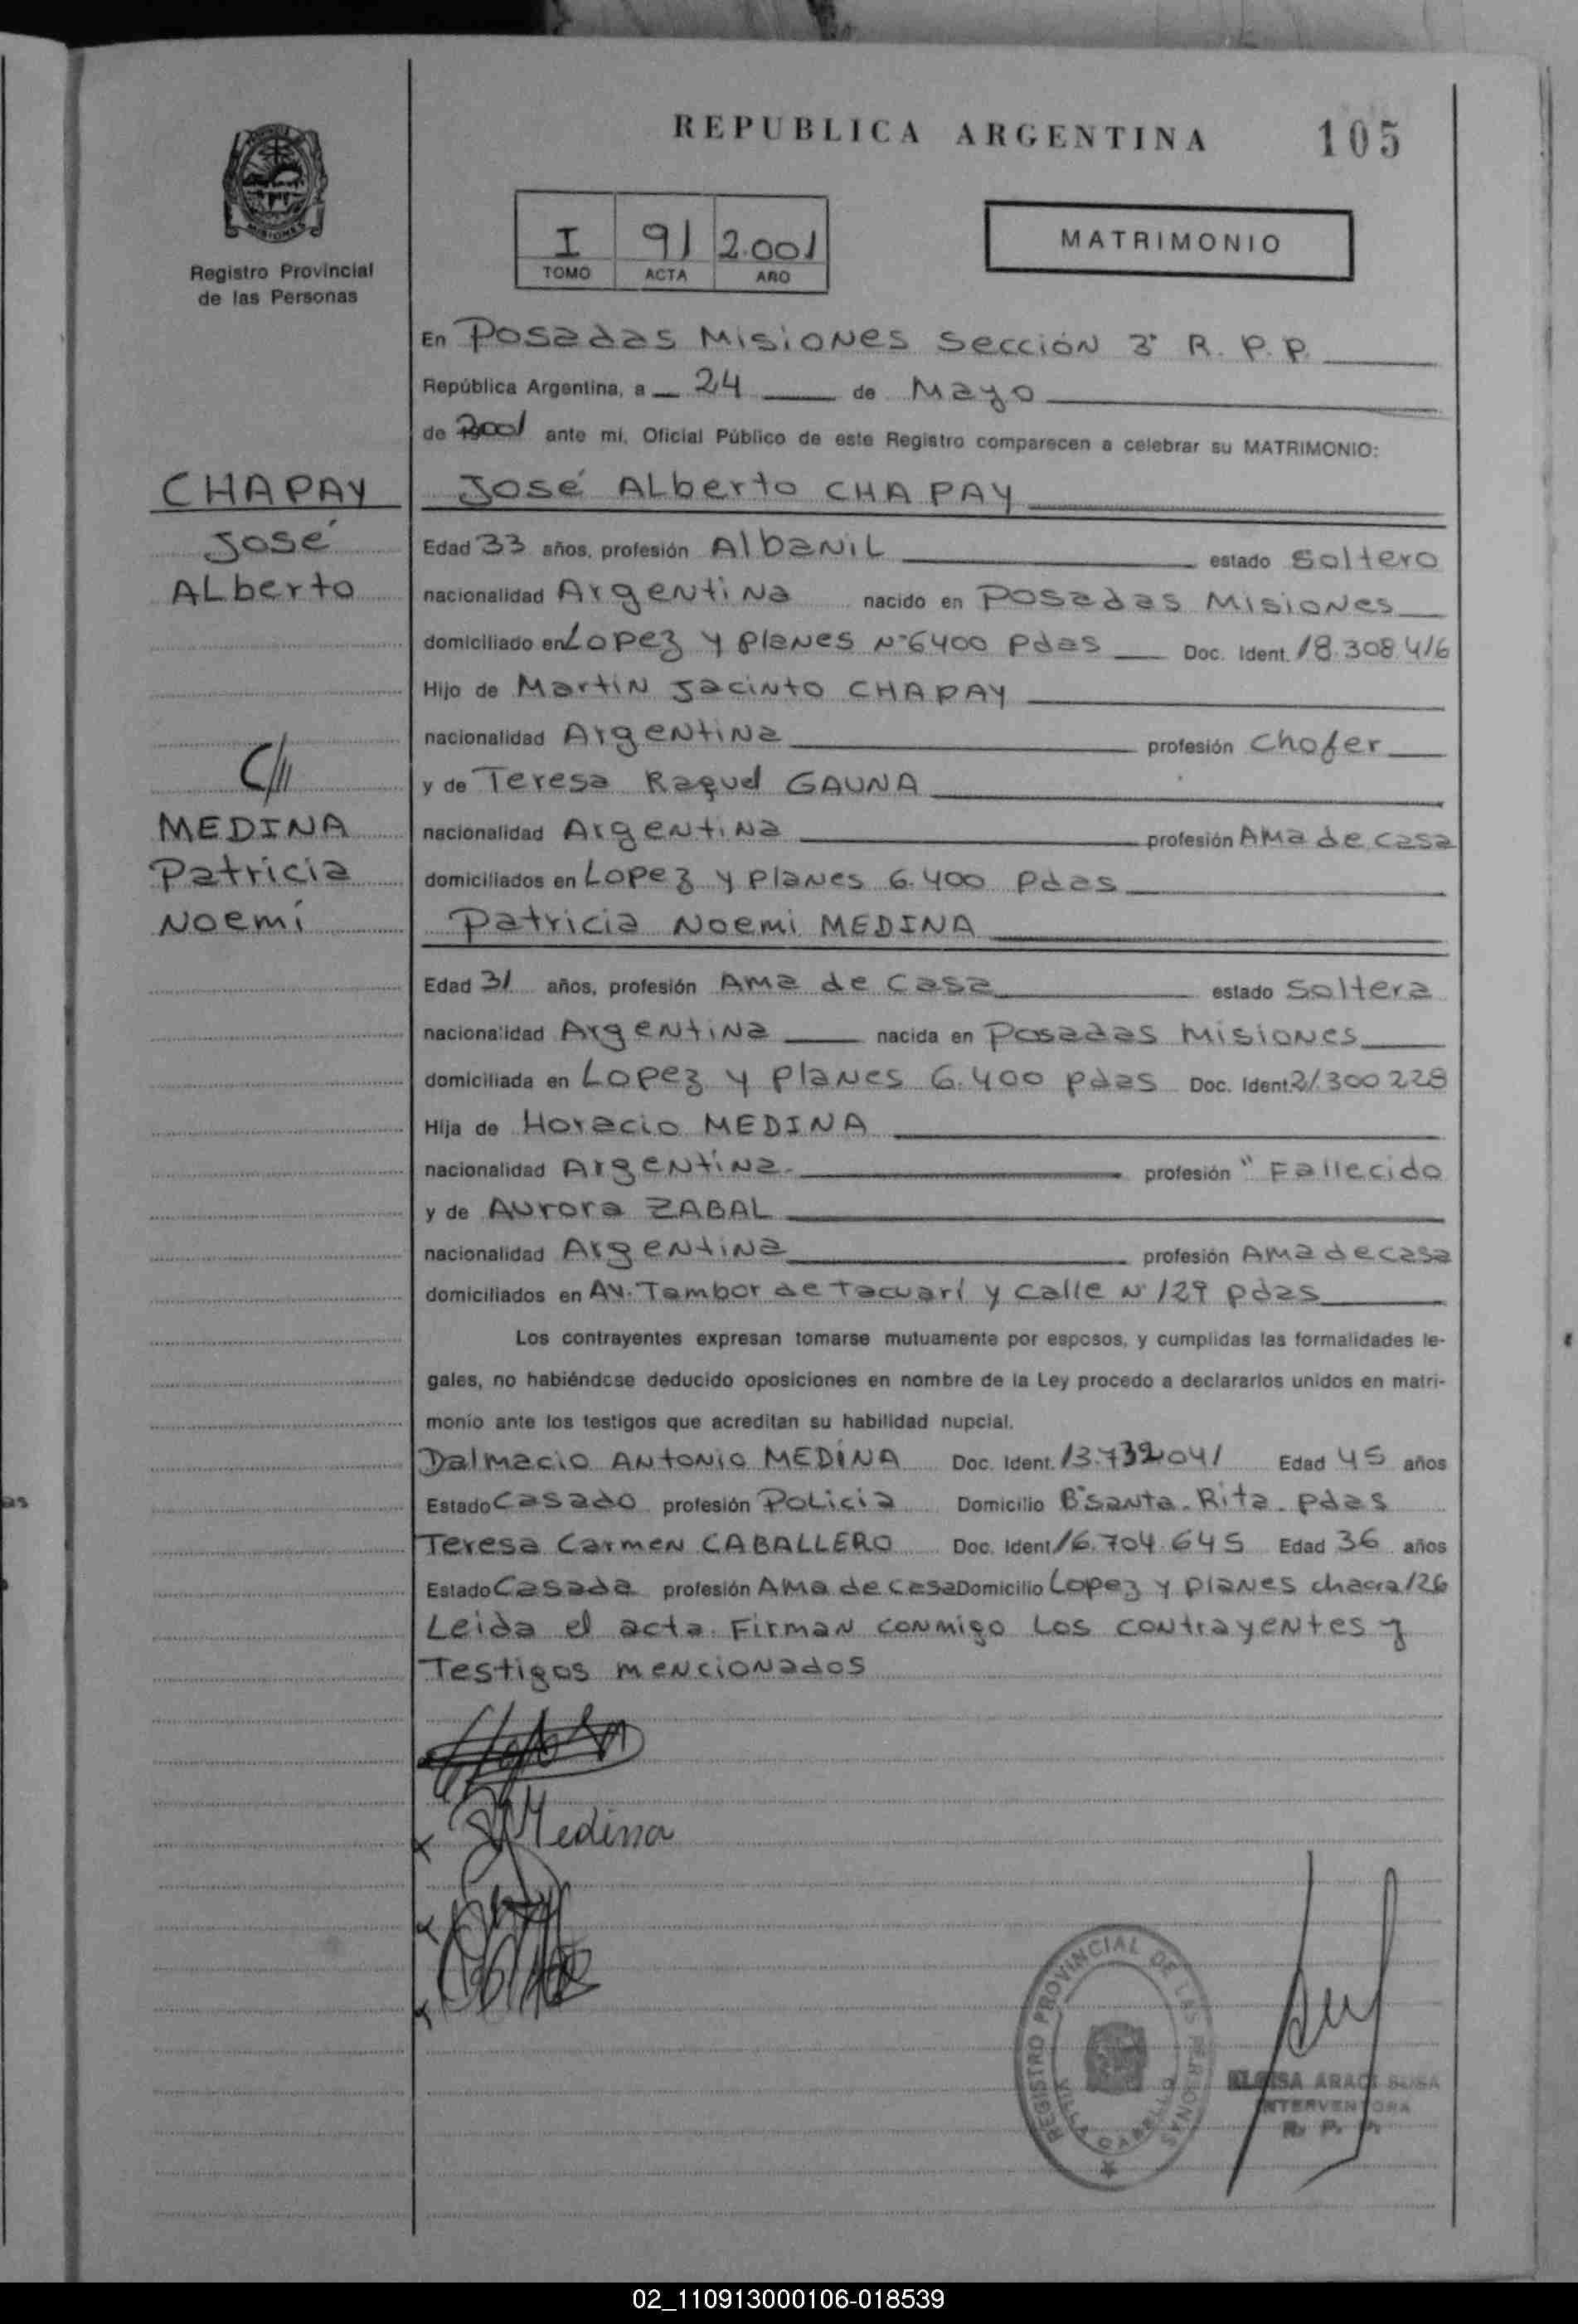 REPUBLICA ARGENTINA 105
MISIONES
Registro Provincial
de las Personas
I 91 2.001
TOMO ACTA AÑO
MATRIMONIO
En Posadas Misiones Sección 3° R. P. P.
República Argentina, a 24 de Mayo
de 2001 ante mí, Oficial Público de este Registro comparecen a celebrar su MATRIMONIO:
CHAPAY
José
Alberto
C///
MEDINA
Patricia
Noemí
José Alberto CHAPAY
Edad 33 años, profesión Albanil estado Soltero
nacionalidad Argentina nacido en Posadas Misiones
domiciliado en Lopez y planes N°6400 Pdas Doc. Ident. 18.308.416
Hijo de Martin Jacinto CHAPAY
nacionalidad Argentina profesión Chofer
y de Teresa Raquel GAUNA
nacionalidad Argentina profesión Ama de casa
domiciliados en Lopez y planes 6.400 pdas
Patricia Noemi MEDINA
Edad 31 años, profesión Ama de Casa estado Soltera
nacionalidad Argentina nacida en Posadas Misiones
domiciliada en Lopez y planes 6.400 pdas Doc. Ident. 21.300228
Hija de Horacio MEDINA
nacionalidad Argentina profesión " Fallecido
y de Aurora ZABAL
nacionalidad Argentina profesión Ama de casa
domiciliados en Av. Tambor de Tacuarí y calle N° 129 pdas
Los contrayentes expresan tomarse mutuamente por esposos, y cumplidas las formalidades le-
gales, no habiéndose deducido oposiciones en nombre de la Ley procedo a declararlos unidos en matri-
monio ante los testigos que acreditan su habilidad nupcial.
Dalmacio Antonio MEDINA Doc. Ident. 13.732041 Edad 45 años
Estado Casado profesión Policia Domicilio B° Santa Rita pdas
Teresa Carmen CABALLERO Doc. Ident. 16.704.645 Edad 36 años
Estado Casada profesión Ama de casa Domicilio Lopez y planes chacra 126
Leida el acta Firman conmigo Los contrayentes y
Testigos mencionados
Medina
REGISTRO PROVINCIAL DE LAS PERSONAS
VILLA CABELLO
ELOISA ARACI SOSA
INTERVENTORA
R. P. P.
as
02_110913000106-018539